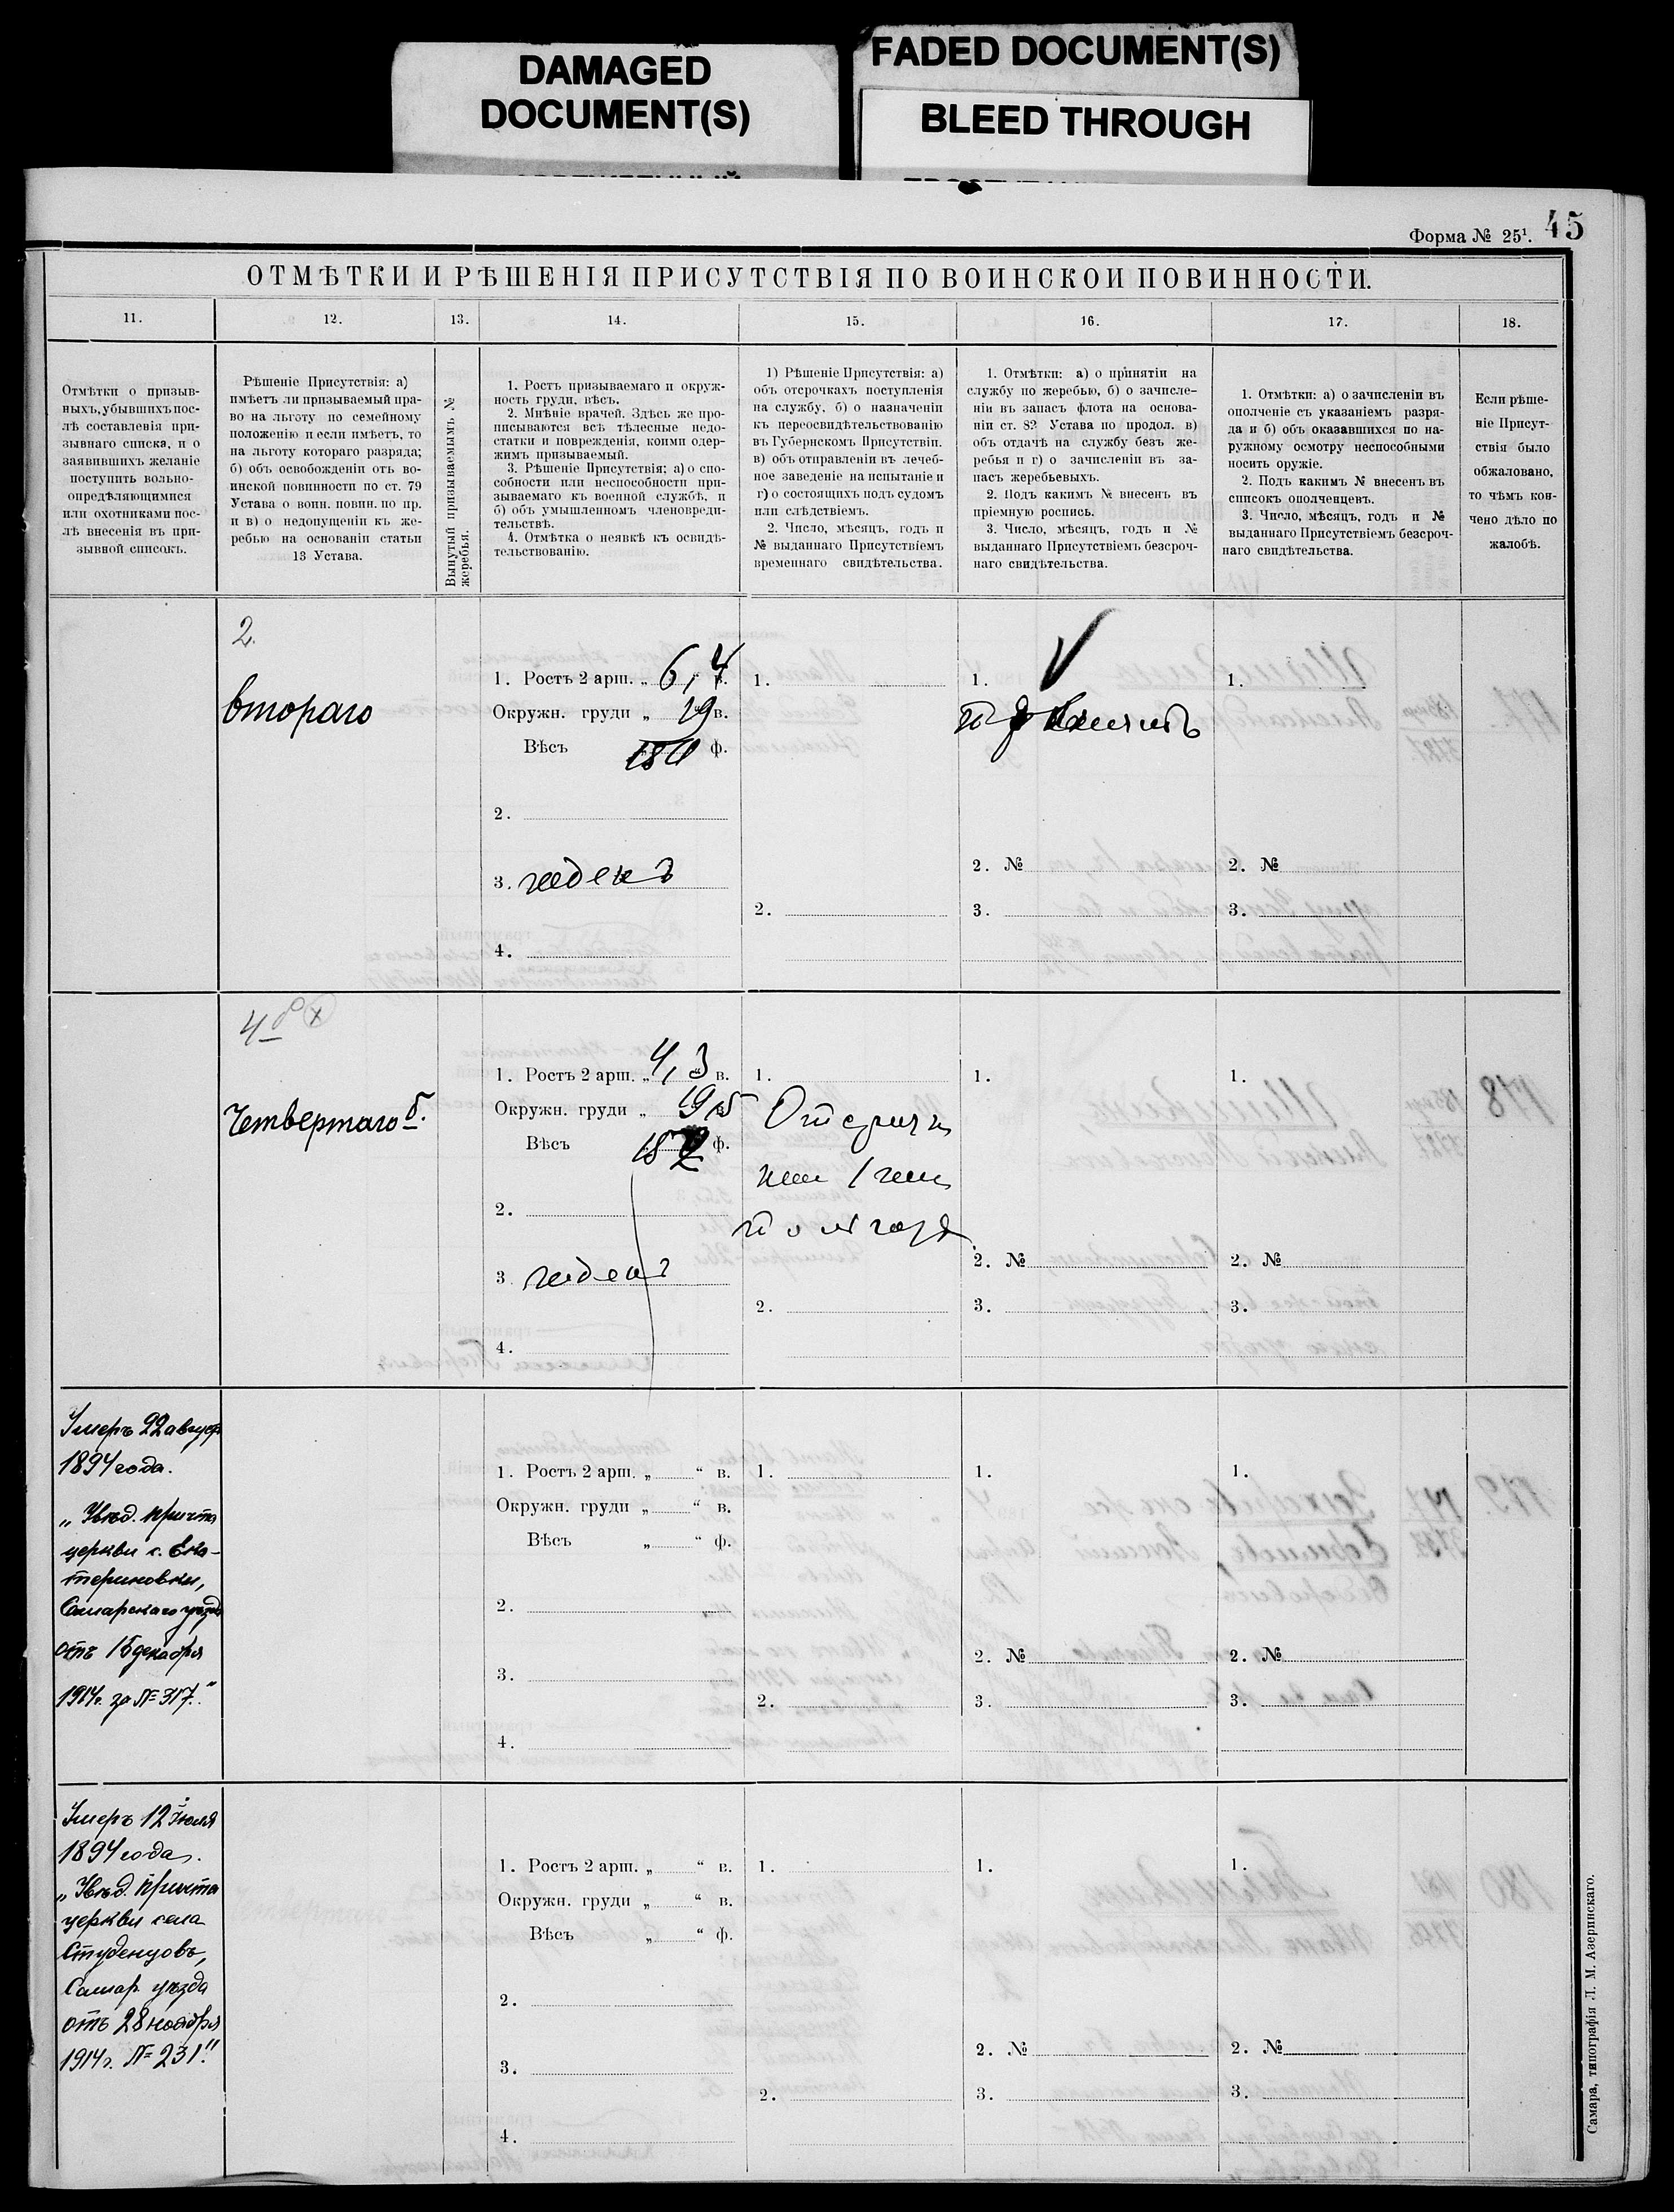 DAMAGED
DOCUMENT(S)
FADED DOCUMENT(S)
BLEED THROUGH
Форма № 25¹. 45
ОТМѢТКИ И РѢШЕНІЯ ПРИСУТСТВІЯ ПО ВОИНСКОЙ ПОВИННОСТИ.
11. 12. 13. 14. 15. 16. 17. 18.
Отмѣтки о призыв-
ныхъ, убывшихъ пос-
лѣ составленія при-
зывнаго списка, и о
заявившихъ желаніе
поступить вольно-
опредѣляющимися
или охотниками пос-
лѣ внесенія въ при-
зывной списокъ.
Рѣшеніе Присутствія: а)
имѣетъ ли призываемый пра-
во на льготу по семейному
положенію и если имѣетъ, то
на льготу котораго разряда;
б) объ освобожденіи отъ во-
инской повинности по ст. 79
Устава о воин. повин. по пр.
и в) о недопущеніи къ же-
ребью на основаніи статьи
13 Устава.
Вынутый призываемымъ №
жеребья.
1. Ростъ призываемаго и окруж-
ность груди, вѣсъ.
2. Мнѣніе врачей. Здѣсь же про-
писываются всѣ тѣлесные недо-
статки и поврежденія, коими одер-
жимъ призываемый.
3. Рѣшеніе Присутствія; а) о спо-
собности или неспособности при-
зываемаго къ военной службѣ, и
б) объ умышленномъ членовреди-
тельствѣ.
4. Отмѣтка о неявкѣ къ освидѣ-
тельствованію.
1) Рѣшеніе Присутствія: а)
объ отсрочкахъ поступленія
на службу, б) о назначеніи
къ переосвидѣтельствованію
въ Губернскомъ Присутствіи.
в) объ отправленіи въ лечеб-
ное заведеніе на испытаніе и
г) о состоящихъ подъ судомъ
или слѣдствіемъ.
2. Число, мѣсяцъ, годъ и
№ выданнаго Присутствіемъ
временнаго свидѣтельства.
1. Отмѣтки: а) о принятіи на
службу по жеребью, б) о зачисле-
ніи въ запасъ флота на основа-
ніи ст. 82 Устава по продол. в)
объ отдачѣ на службу безъ же-
ребья и г) о зачисленіи въ за-
пасъ жеребьевыхъ.
2. Подъ какимъ № внесенъ въ
пріемную роспись.
3. Число, мѣсяцъ, годъ и №
выданнаго Присутствіемъ безсроч-
наго свидѣтельства.
1. Отмѣтки: а) о зачисленіи въ
ополченіе съ указаніемъ разря-
да и б) объ оказавшихся по на-
ружному осмотру неспособными
носить оружіе.
2. Подъ какимъ № внесенъ въ
списокъ ополченцевъ.
3. Число, мѣсяцъ, годъ и №
выданнаго Присутствіемъ безсроч-
наго свидѣтельства.
Если рѣше-
ніе Присут-
ствія было
обжаловано,
то чѣмъ кон-
чено дѣло по
жалобѣ.
2.
втораго
1. Ростъ 2 арш. „ 6,4 в.
Окружн. груди „ 19 в.
Вѣсъ 180 ф.
2.
3. годенъ
4.
1.
2.
1.
2. №
3.
1.
2. №
3.
4
Четвертаго б.
1. Ростъ 2 арш. „ 4,3 в.
Окружн. груди „ 19,5
Вѣсъ ф.
2.
3 годенъ
4.
1.
Отсрочка
2.
1.
2. №
3.
1.
2. №
3.
Умеръ 22 август
1894 года.
„Увѣд. причта
церкви с. Ека-
териновки,
Самарскаго уѣзда
отъ 15 декабря
1914 г. за № 317.“
1. Ростъ 2 арш. „ “ в.
Окружн. груди „ “ в.
Вѣсъ „ “ ф.
2.
3.
4.
1.
2.
1.
2. №
3.
1.
2. №
3.
Умеръ 12 іюля
1894 года.
„Увѣд. причта
церкви села
Студенцовъ,
Самар. уѣзда
отъ 28 ноября
1914 г. № 231.“
1. Ростъ 2 арш. „ “ в.
Окружн. груди „ “ в.
Вѣсъ „ “ ф.
2.
3.
4.
1.
2.
1.
2. №
3.
1.
2. №
3.
Самара, типографія Л. М. Азеринскаго.